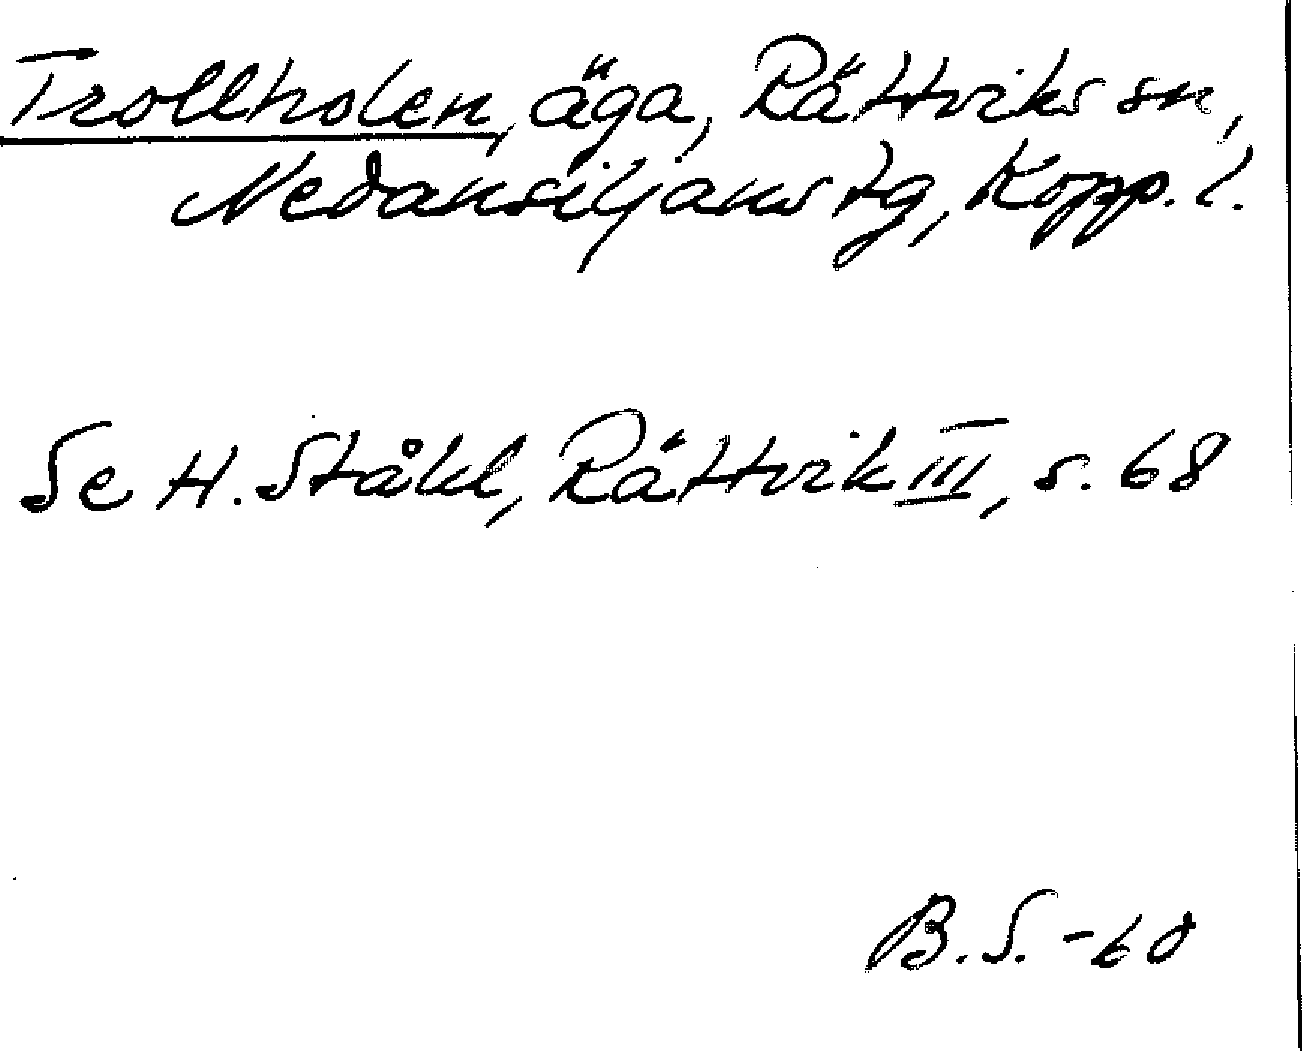 Trollholen, äga, Rättviks sn,
Nedansiljans tg, Kopp. l.
Se H. Ståhl, Rättvik III, s. 68
B. S. -60